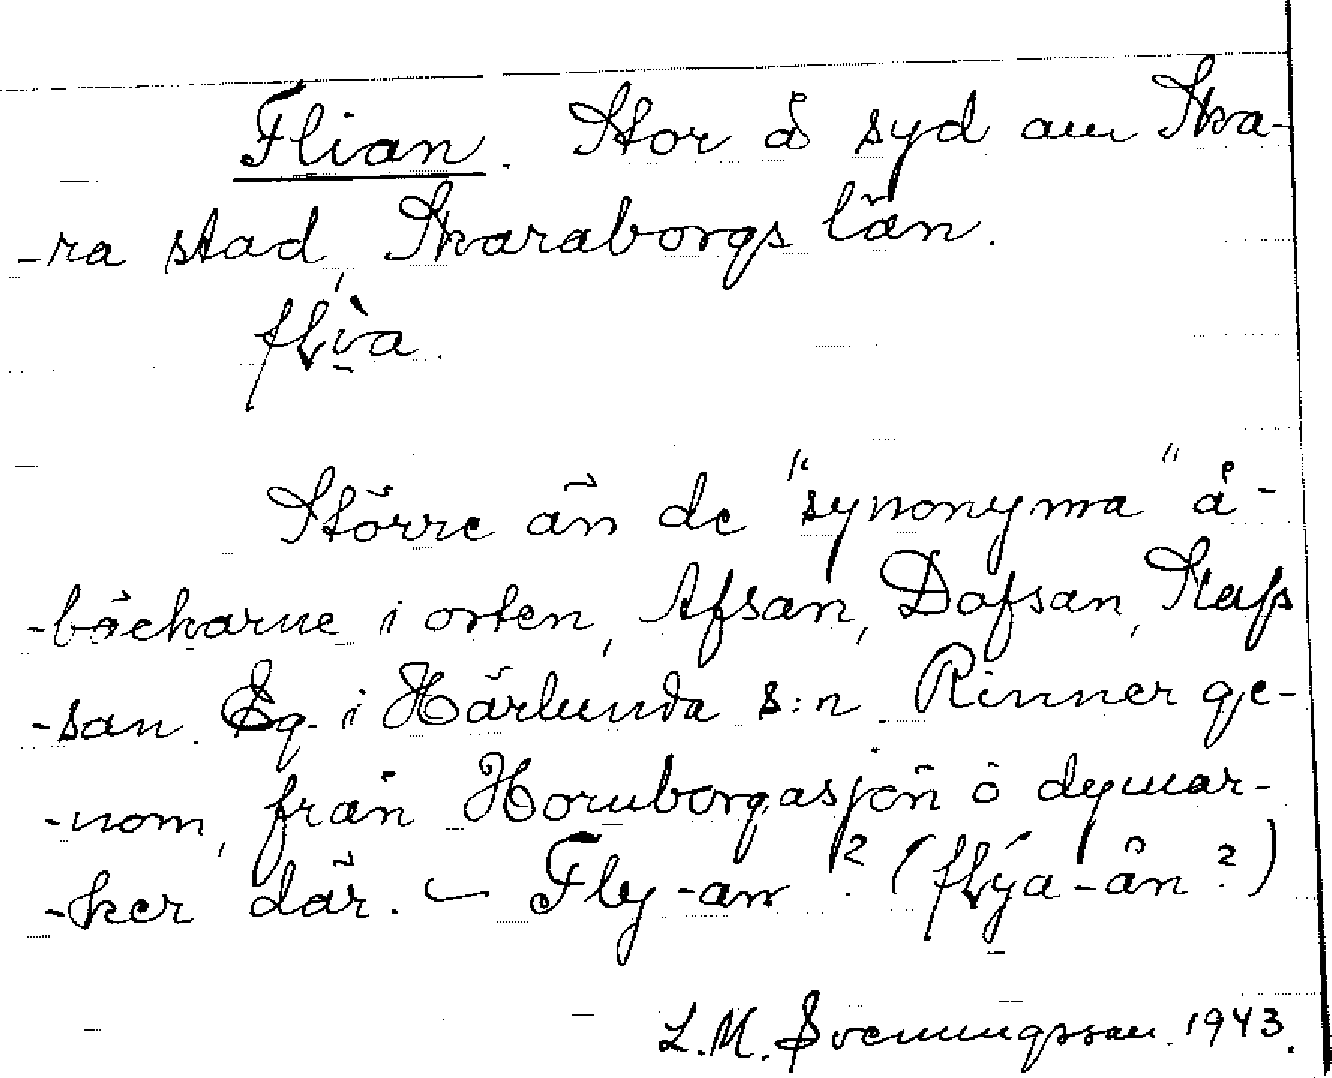 Flian. Stor å syd om Ska-
-ra stad, Skaraborgs län.
flìa.
Större än de "synonyma" å-
-bäckarne i orten, Afsan, Dofsan, Stafs
-san. Eg. i Härlunda s:n. Rinner ge-
-nom, från Hornborgasjön ö dymar-
-ker där. — Fly-an? (flýa-ån?)
L. M. Svenungsson. 1943.